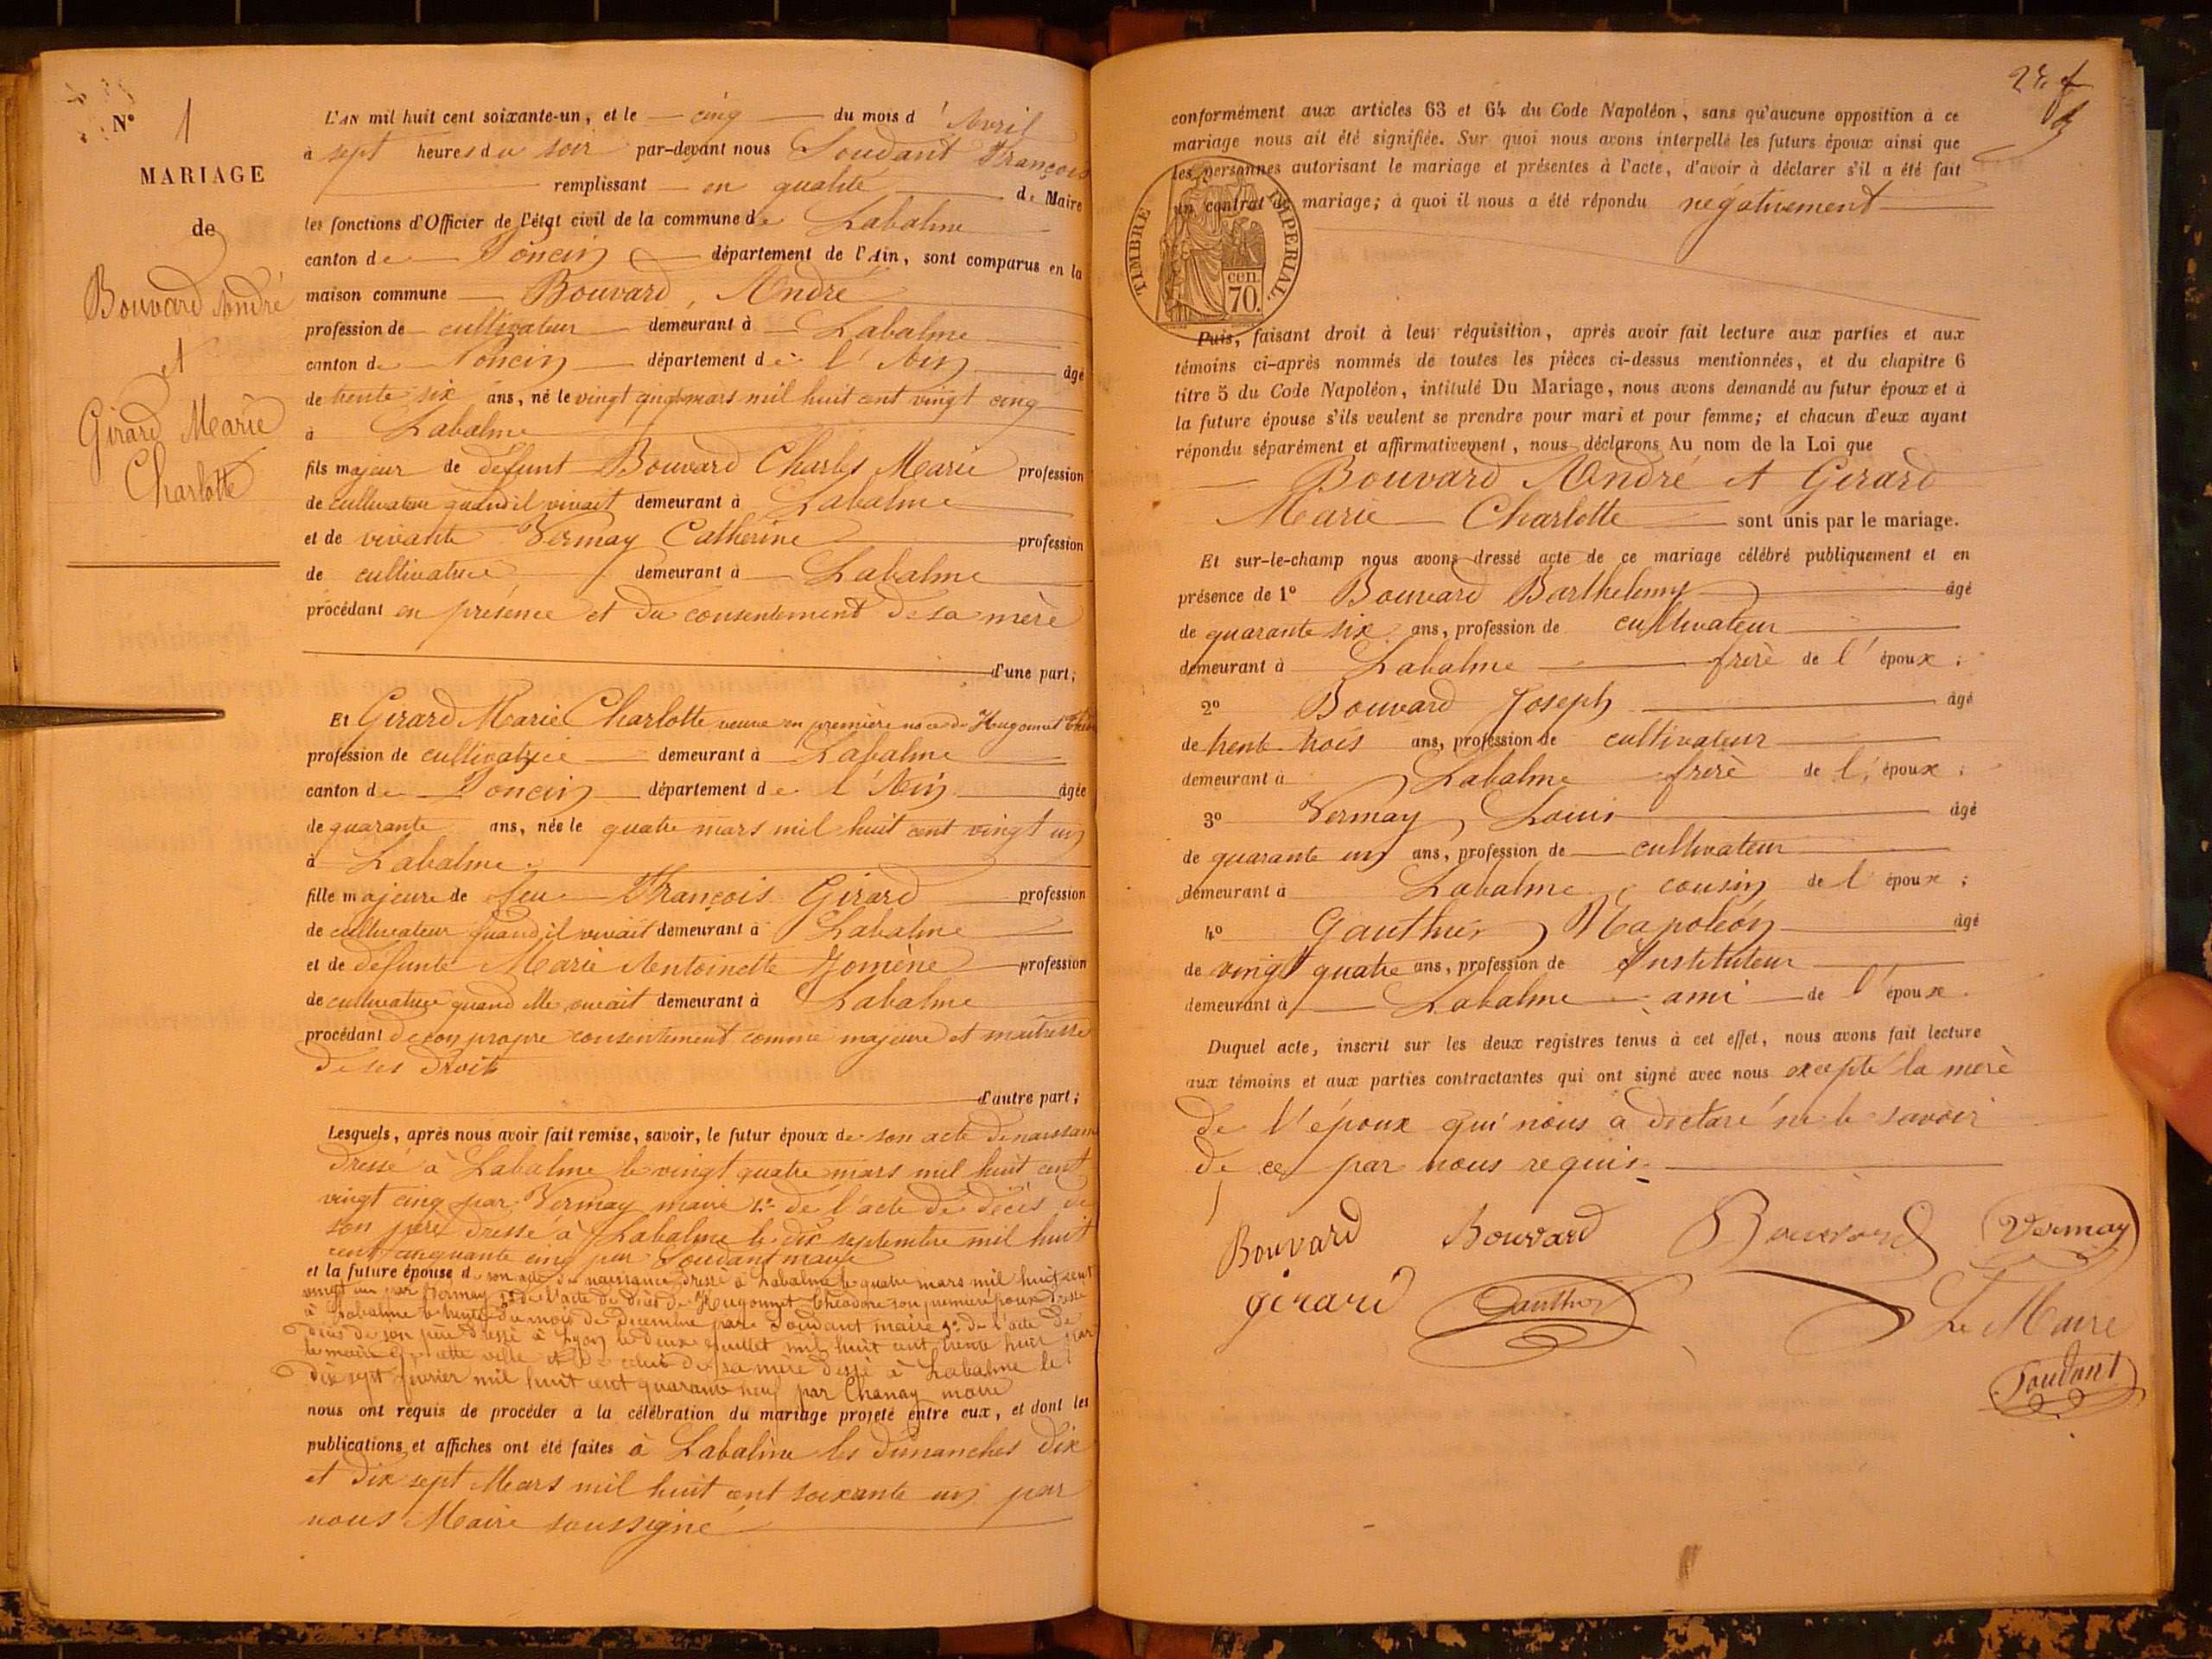 N° 1
MARIAGE
de
Bouvard André
et
Girard Marie
Charlotte
L'AN mil huit cent soixante-un, et le cinq du mois d'Avril
à sept heures du soir par-devant nous Soudant François
remplissant en qualité de Maire
les fonctions d'Officier de l'état civil de la commune de Labalme
canton de Poncin département de l'Ain, sont comparus en la
maison commune Bouvard, André
profession de cultivateur demeurant à Labalme
canton de Poncin département de l'Ain âgé
de trente six ans, né le vingt cinq mars mil huit cent vingt cinq
à Labalme
fils majeur de défunt Bouvard Charles Marie profession
de cultivateur quand il vivait demeurant à Labalme
et de vivante Vermay Catherine profession
de cultivatrice demeurant à Labalme
procédant en présence et du consentement de sa mère
d'une part;
Et Girard Marie Charlotte veuve en première noce de Hugonnet
profession de cultivatrice demeurant à Labalme
canton de Poncin département de l'Ain âgée
de quarante ans, née le quatre mars mil huit cent vingt un
à Labalme
fille majeure de feu François Girard profession
de cultivateur quand il vivait demeurant à Labalme
et de défunte Marie Antoinette Jomène profession
de cultivatrice quand elle vivait demeurant à Labalme
procédant de son propre consentement comme majeure et maitresse
de ses droits
d'autre part;
Lesquels, après nous avoir fait remise, savoir, le futur époux de son acte de naissance
dressé à Labalme le vingt quatre mars mil huit cent
vingt cinq par Vermay maire de l'acte de décès de
son père dressé à Labalme le dix septembre mil huit
cent cinquante cinq par Soudant maire
et la future épouse de son acte de naissance dressé à Labalme le quatre mars mil huit cent
vingt un par Vermay de l'acte de décès de Hugonnet Théodore son premier époux dressé
à Labalme le trente du mois de décembre par Soudant maire de l'acte de
décès de son père dressé à Lyon le deux juillet mil huit cent trente huit par
le maire de cette ville et de celui de sa mère dressé à Labalme le
dix sept février mil huit cent quarante neuf par Chanay maire
nous ont requis de procéder à la célébration du mariage projeté entre eux, et dont les
publications et affiches ont été faites à Labalme les dimanches dix
et dix sept Mars mil huit cent soixante un par
nous Maire soussigné
conformément aux articles 63 et 64 du Code Napoléon, sans qu'aucune opposition à ce
mariage nous ait été signifiée. Sur quoi nous avons interpellé les futurs époux ainsi que
les personnes autorisant le mariage et présentes à l'acte, d'avoir à déclarer s'il a été fait
un contrat de mariage; à quoi il nous a été répondu négativement
TIMBRE IMPERIAL.
70 cen.
Puis, faisant droit à leur réquisition, après avoir fait lecture aux parties et aux
témoins ci-après nommés de toutes les pièces ci-dessus mentionnées, et du chapitre 6
titre 5 du Code Napoléon, intitulé Du Mariage, nous avons demandé au futur époux et à
la future épouse s'ils veulent se prendre pour mari et pour femme; et chacun d'eux ayant
répondu séparément et affirmativement, nous déclarons Au nom de la Loi que
Bouvard André et Girard
Marie Charlotte sont unis par le mariage.
Et sur-le-champ nous avons dressé acte de ce mariage célébré publiquement et en
présence de 1° Bouvard Barthelemy âgé
de quarante six ans, profession de cultivateur
demeurant à Labalme frère de l'époux;
2° Bouvard Joseph âgé
de trente trois ans, profession de cultivateur
demeurant à Labalme frère de l'époux;
3° Vermay Louis âgé
de quarante un ans, profession de cultivateur
demeurant à Labalme cousin de l'époux;
4° Gauthier Napoléon âgé
de vingt quatre ans, profession de Instituteur
demeurant à Labalme ami de l'époux.
Duquel acte, inscrit sur les deux registres tenus à cet effet, nous avons fait lecture
aux témoins et aux parties contractantes qui ont signé avec nous excepté la mère
de l'époux qui nous a déclaré ne le savoir
de ce par nous requis.
Bouvard Bouvard Bouvard Vermay
girard Gauthier Le Maire
Soudant